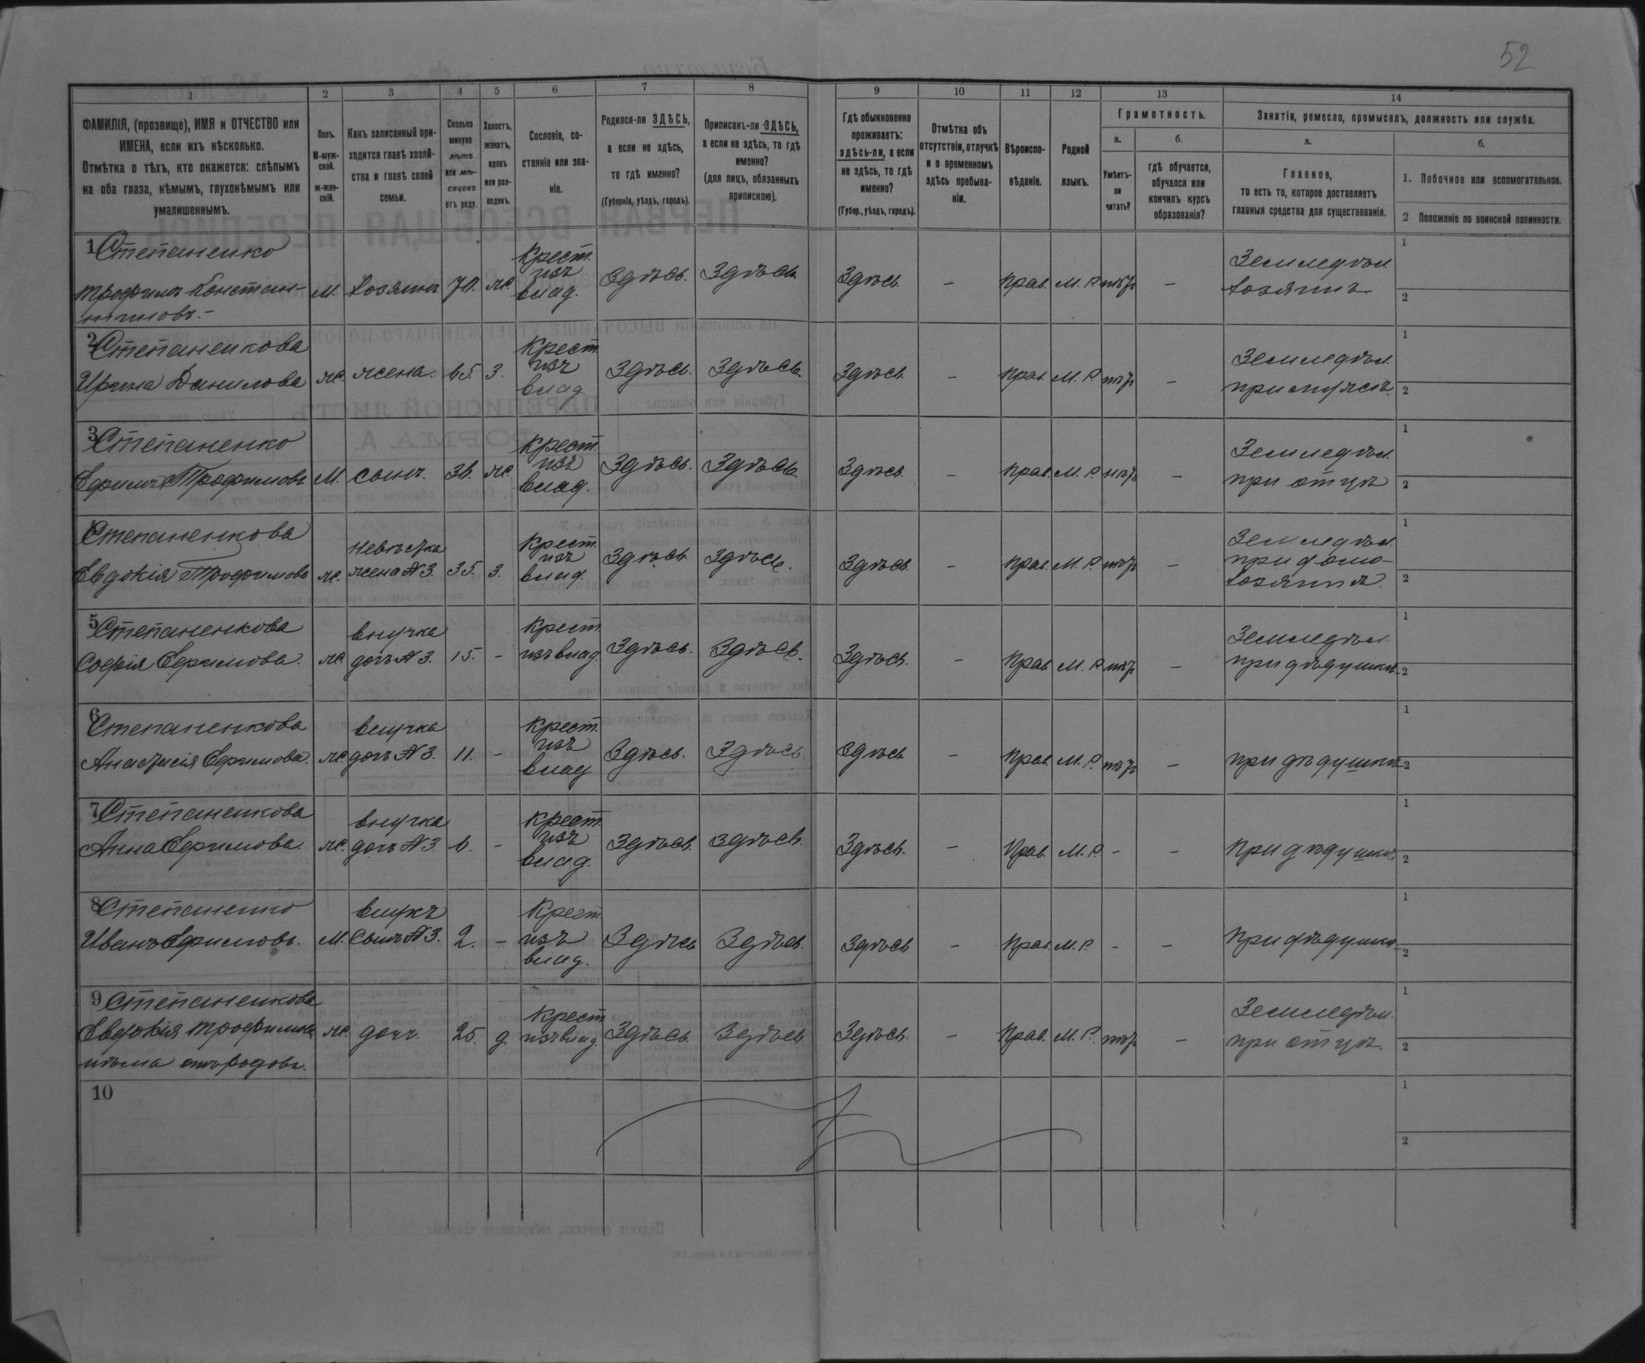 52
1
2
3
4
5
6
7
8
9
10
11
12
13
14
ФАМИЛІЯ, (прозвище), ИМЯ и ОТЧЕСТВО или
ИМЕНА, если ихъ нѣсколько.
Отмѣтка о тѣхъ, кто окажется: слѣпымъ
на оба глаза, нѣмымъ, глухонѣмымъ или
умалишеннымъ.
Полъ.
М-муж-
ской.
ж-жен-
скій.
Какъ записанный при-
ходится главѣ хозяй-
ства и главѣ своей
семьи.
Сколько
минуло
лѣтъ
или мѣ-
сяцевъ
отъ роду.
Холостъ,
женатъ,
вдовъ
или раз-
веденъ.
Сословіе, со-
стояніе или зва-
ніе.
Родился-ли ЗДѢСЬ,
а если не здѣсь,
то гдѣ именно?
(Губернія, уѣздъ, городъ).
Приписанъ-ли ЗДѢСЬ,
а если не здѣсь, то гдѣ
именно?
(для лицъ, обязанныхъ
припискою).
Гдѣ обыкновенно
проживаетъ:
здѣсь-ли, а если
не здѣсь, то гдѣ
именно?
(Губер., уѣздъ, городъ).
Отмѣтка объ
отсутствіи, отлучкѣ
и о временномъ
здѣсь пребыва-
ніи.
Вѣроиспо-
вѣданіе.
Родной
языкъ.
Грамотность.
а.
Умѣетъ-
ли
читать?
б.
гдѣ обучается,
обучался или
кончилъ курсъ
образованія?
Занятіе, ремесло, промыселъ, должность или служба.
а.
Главное,
то есть то, которое доставляетъ
главныя средства для существованія.
б.
1. Побочное или вспомогательное.
2 Положеніе по воинской повинности.
1 Степаненко
Трофимъ Констан-
тиновъ.-
М. Хозяинъ 70. ж.
Крест.
изъ
влад.
Здѣсь. Здѣсь. Здѣсь - Прав. М. Р. - Земледѣл.
хозяинъ
1
2
2 Степаненкова
Ирина Данилова
ж. жена. 65. З.
Крест.
изъ
влад
Здѣсь. Здѣсь. Здѣсь - Прав. М. Р. - Земледѣл.
при мужѣ.
1
2
3 Степаненко
Ефимъ Трофимовъ
М. сынъ. 36. ж.
Крест.
изъ
влад.
Здѣсь. Здѣсь. Здѣсь. - Прав. М. Р. - Земледѣл.
при отцѣ
1
2
Степаненкова
Евдокія Трофимова
ж. Невѣстка
жена №3. 35. З.
Крест.
изъ
влад.
Здѣсь Здѣсь. Здѣсь. - Прав. М. Р. - Земледѣл.
при домо-
хозяинѣ.
1
2
5 Степаненкова
Софія Ефимова.
ж. внучка
дочь №3. 15. -
Крест.
изъ влад
Здѣсь. Здѣсь. Здѣсь. - Прав М. Р. - Земледѣл.
при дѣдушкѣ.
1
2
6
Степаненкова
Анастасія Ефимова.
ж. внучка
дочь №3. 11. -
Крест.
изъ
влад
Здѣсь. Здѣсь. Здѣсь - Прав. М. Р. - при дѣдушкѣ
1
2
7 Степаненкова
Анна Ефимова.
ж. внучка
дочь №3 6. -
Крест.
изъ
влад.
Здѣсь. Здѣсь. Здѣсь. - Прав. М. Р. - - при дѣдушкѣ
1
2
8 Степаненко
Иванъ Ефимовъ.
М. внукъ
сынъ №3. 2. -
Крест.
изъ
влад.
Здѣсь Здѣсь. Здѣсь - Прав. М. Р. - - при дѣдушкѣ
1
2
9 Степаненкова
Евдокія Трофимова
нѣма отъ родовъ.
ж. дочь 25. д.
Крест
изъ влад.
Здѣсь Здѣсь Здѣсь. - Прав. М. Р. - Земледѣл.
при отцѣ.
1
2
10
1
2